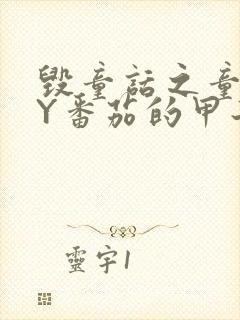 毁童话之童
Y番茄的甲
靈宇1